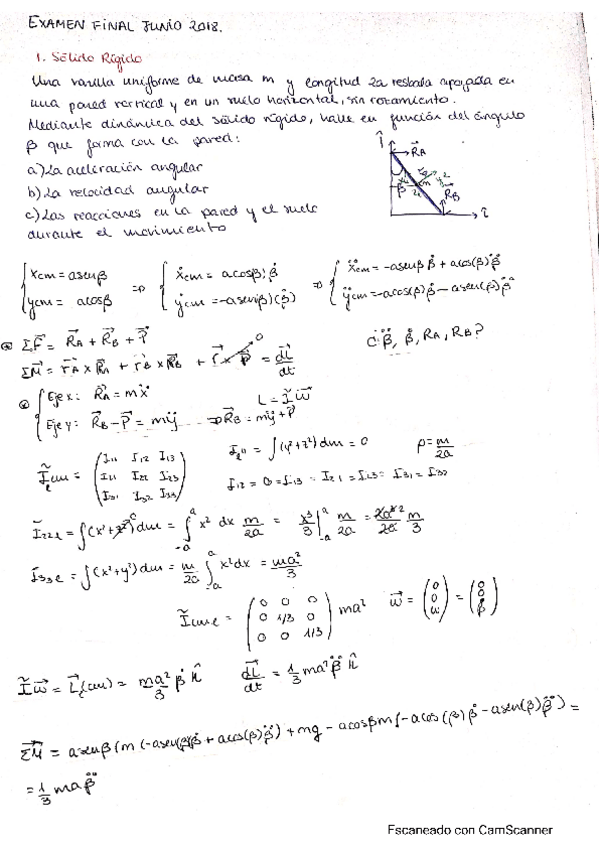 EXAMEN FINAL JUNIO 2018.
1. Sólido Rígido
Una varilla uniforme de masa m y longitud 2a resbala apoyada en
una pared vertical y en un suelo horizontal, sin rozamiento.
Mediante dinámica del sólido rígido, halle en función del ángulo
β que forma con la pared:
a) La aceleración angular
b) La velocidad angular
c) Las reacciones en la pared y el suelo
durante el movimiento
R_A
R_B
β
xcm = a senβ ⇒ ẋcm = a cosβ; β̇ ⇒ ẍcm = -a senβ β̇ + a cos(β) β̈
ycm = a cosβ ẏcm = -a sen(β)(β̇) ÿcm = -a cos(β) β̇ - a sen(β) β̈
ΣF = R_A + R_B + P
¿β̈, β̇, R_A, R_B?
ΣM = r_A x R_A + r_B x R_B + r x P = dL/dt
Eje x: R_A = mẍ L = Ĩ ω
Eje y: R_B - P = mÿ ⇒ R_B = mÿ + P
I₁₁ = ∫(y²+z²) dm = 0 ρ = m/2a
Ĩcm = (I₁₁ I₁₂ I₁₃
I₂₁ I₂₂ I₂₃
I₃₁ I₃₂ I₃₃)
I₁₂ = 0 = I₁₃ = I₂₁ = I₂₃ = I₃₁ = I₃₂
Ĩ₂₂e = ∫(x²+z²) dm = ∫₋ₐᵃ x² dx m/2a = x³/3 |₋ₐᵃ m/2a = m/3
I₃₃e = ∫(x²+y²) dm = m/2a ∫₋ₐᵃ x² dx = ma²/3
Ĩcm e = (0 0 0
0 1/3 0
0 0 1/3) ma² ω = (0 0 ω) = (0 0 β̇)
Ĩω = L(cm) = ma²/3 β̇ k̂ dL/dt = 1/3 ma² β̈ k̂
ΣM = a senβ (m (-a sen(β)β̇ + a cos(β) β̈) + mg - a cosβ m (-a cos(β) β̇ - a sen(β) β̈) =
= 1/3 ma β̈
Escaneado con CamScanner